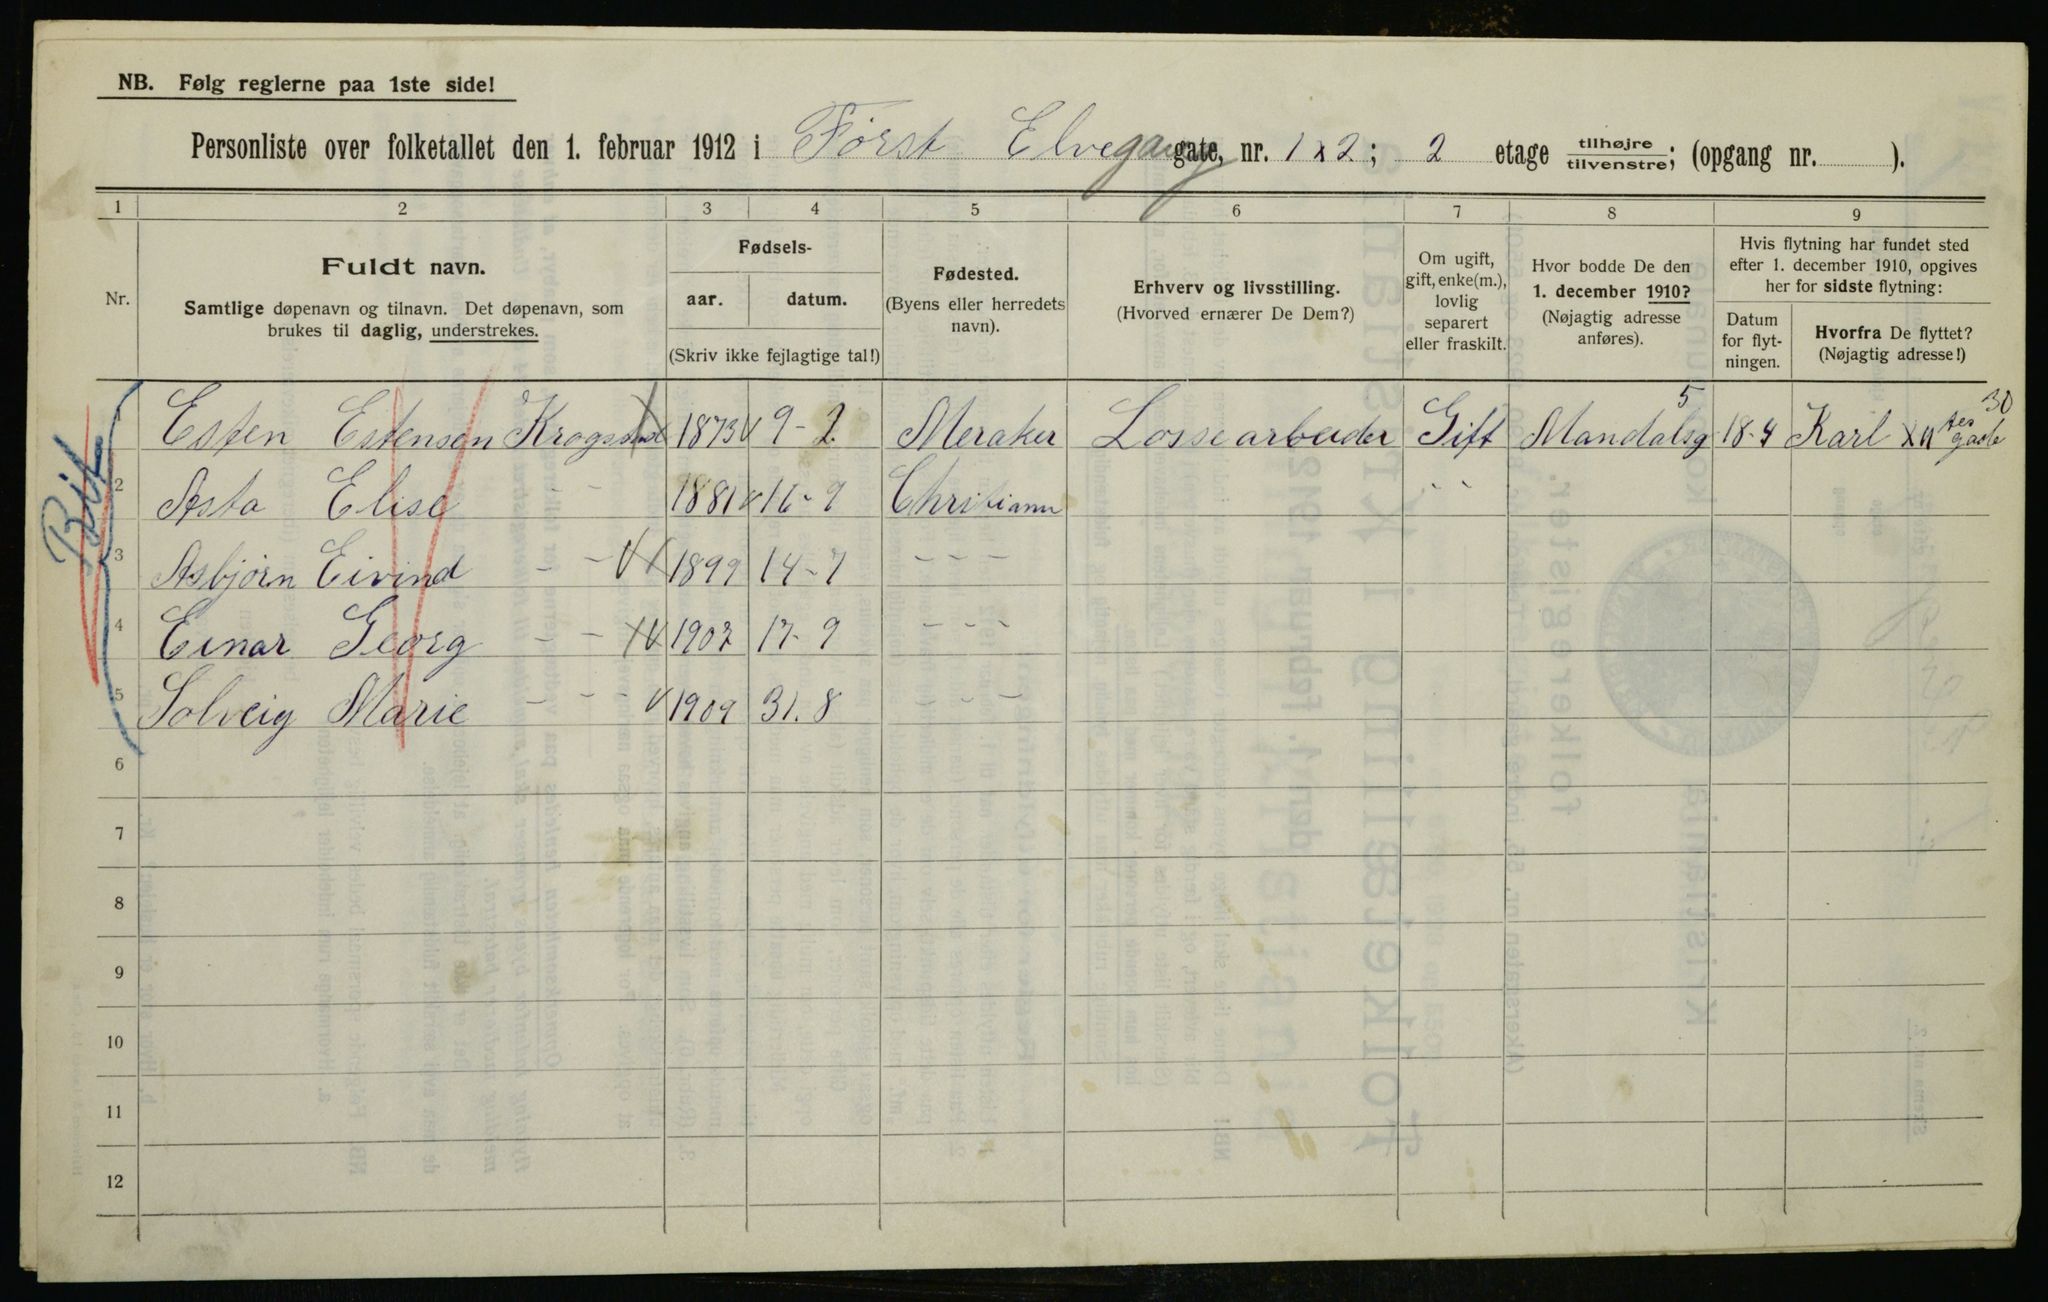 NB. Følg reglerne paa 1ste side!
Personliste over folketallet den 1. februar 1912 i Først Elvegang gate, nr. 1 x 2; 2 etage tilhøjre/tilvenstre; (opgang nr. ).
1 2 3 4 5 6 7 8 9
Nr.
Fuldt navn.
Samtlige døpenavn og tilnavn. Det døpenavn, som
brukes til daglig, understrekes.
Fødsels-
aar. datum.
(Skriv ikke fejlagtige tal!)
Fødested.
(Byens eller herredets
navn).
Erhverv og livsstilling.
(Hvorved ernærer De Dem?)
Om ugift,
gift, enke(m.),
lovlig
separert
eller fraskilt.
Hvor bodde De den
1. december 1910?
(Nøjagtig adresse
anføres).
Hvis flytning har fundet sted
efter 1. december 1910, opgives
her for sidste flytning:
Datum
for flyt-
ningen.
Hvorfra De flyttet?
(Nøjagtig adresse!)
1 Esten Estensen 1873 9-2 Meraker Lossearbeider Gift Mandalsg 5 18-4 Karl XII tes gade 30
2 Asta Elise - - 1881 16-9 Christiania " "
3 Asbjørn Eivind - - 1899 14-7 - - -
4 Einar Georg - - 1902 17-9 - - -
5 Solveig Marie - - - 1909 31.8 - - -
6
7
8
9
10
11
12